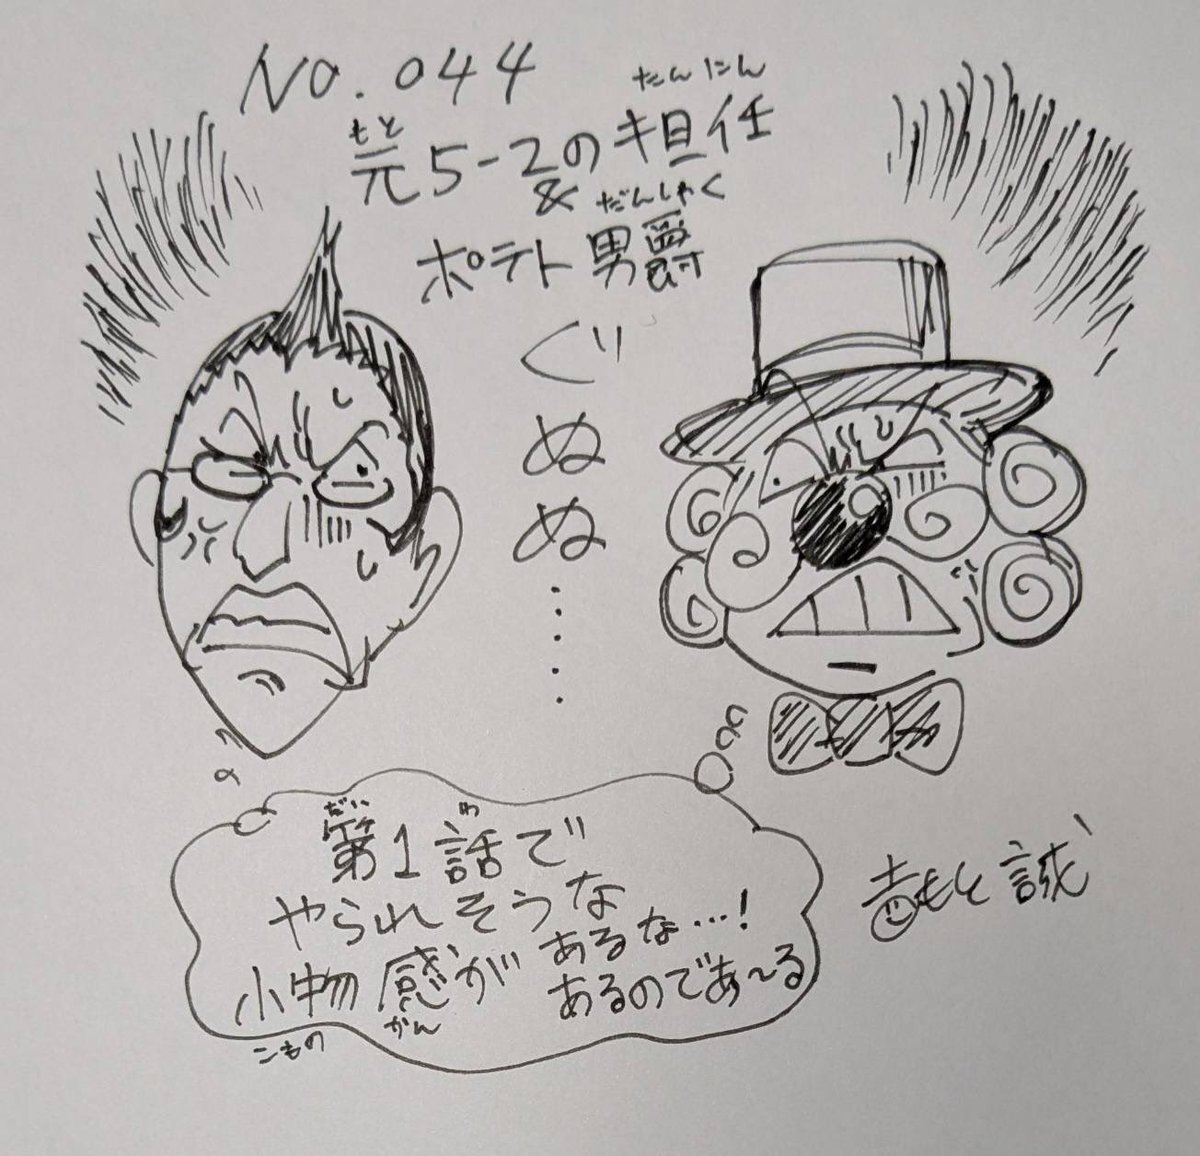 NO.044
元5-2の担任
&
ポテト男爵
もと
たんにん
だんしゃく
ぐぬぬ・・・・・
第1話で
やられそうな
小物感があるな…!
あるのであ～る
だい
わ
こもの
かん
誠